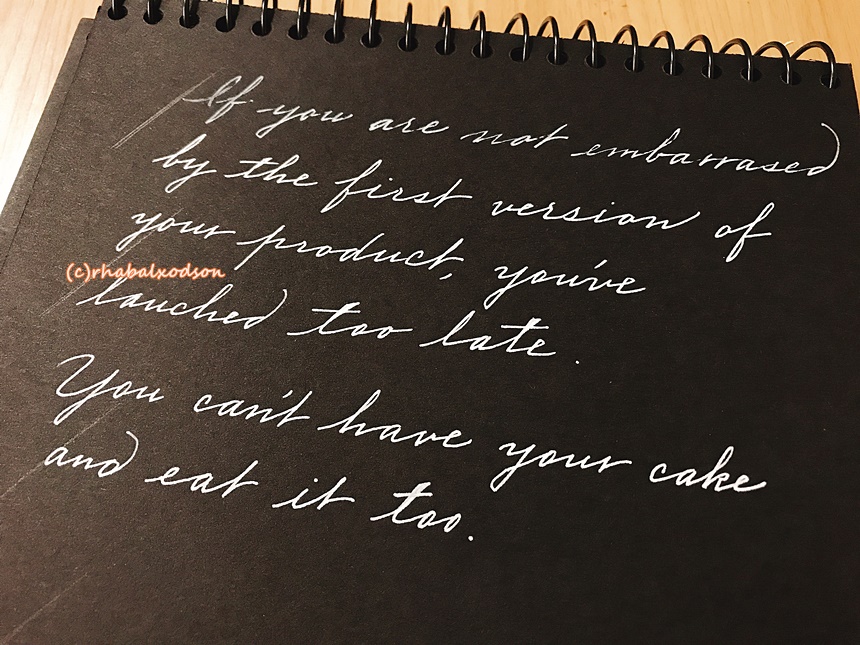 If you are not embarrased
by the first version of
your product, you've
(c)rhabalxodson
lauched too late.
You can't have your cake
and eat it too.